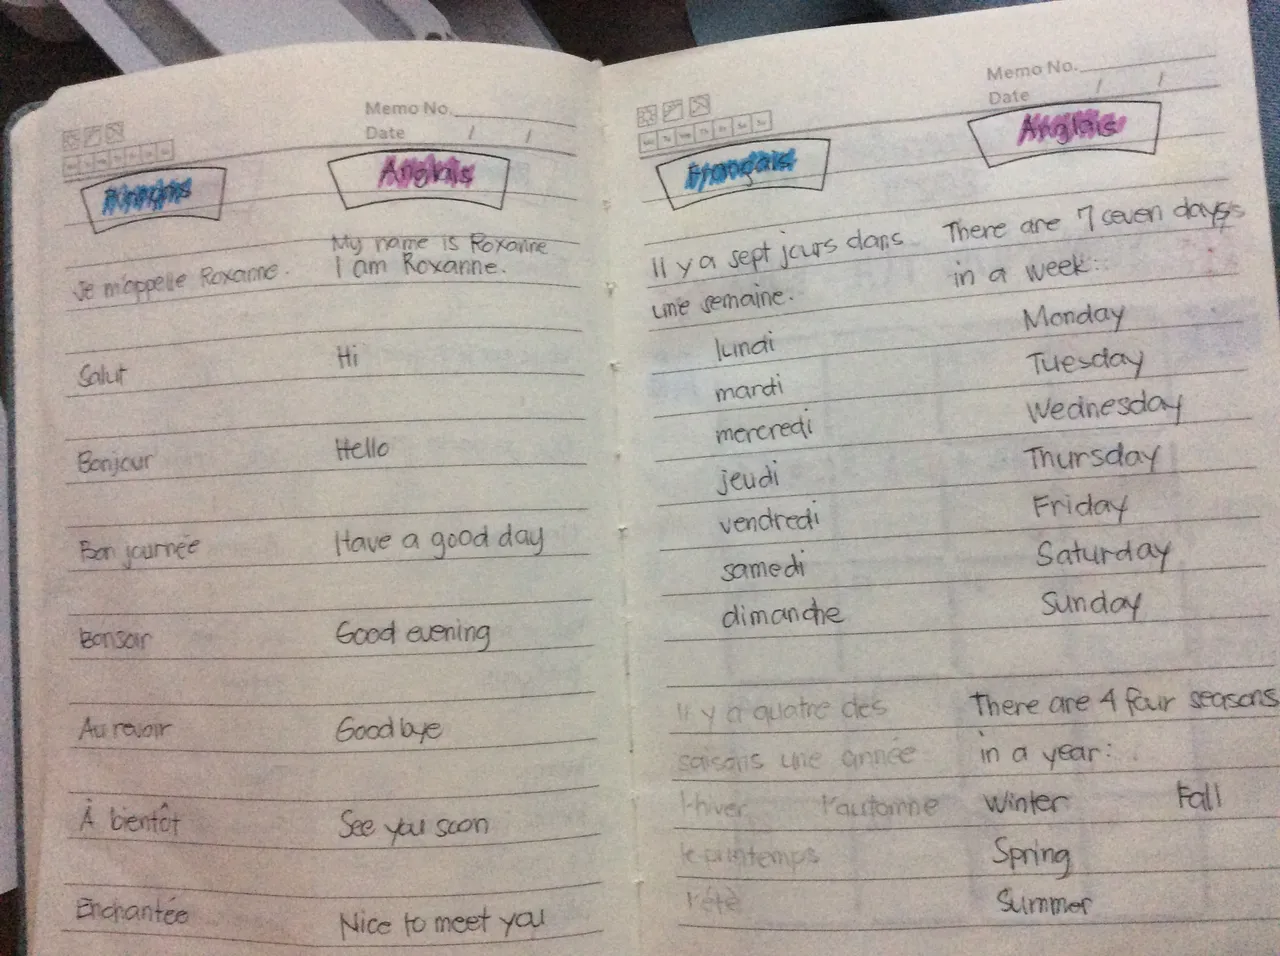 Memo No.
Date / /
Français Anglais
My name is Roxanne
Je m'appelle Roxanne. I am Roxanne.
Salut Hi
Bonjour Hello
Bon journée Have a good day
Bonsoir Good evening
Au revoir Goodbye
À bientôt See you soon
Enchantée Nice to meet you
Memo No.
Date / /
Français Anglais
Il y a sept jours dans There are 7 seven days
une semaine. in a week:
lundi Monday
mardi Tuesday
mercredi Wednesday
jeudi Thursday
vendredi Friday
samedi Saturday
dimanche Sunday
Il y a quatre des There are 4 four seasons
saisons une année in a year:
l'hiver l'automne Winter Fall
le printemps Spring
l'étè Summer